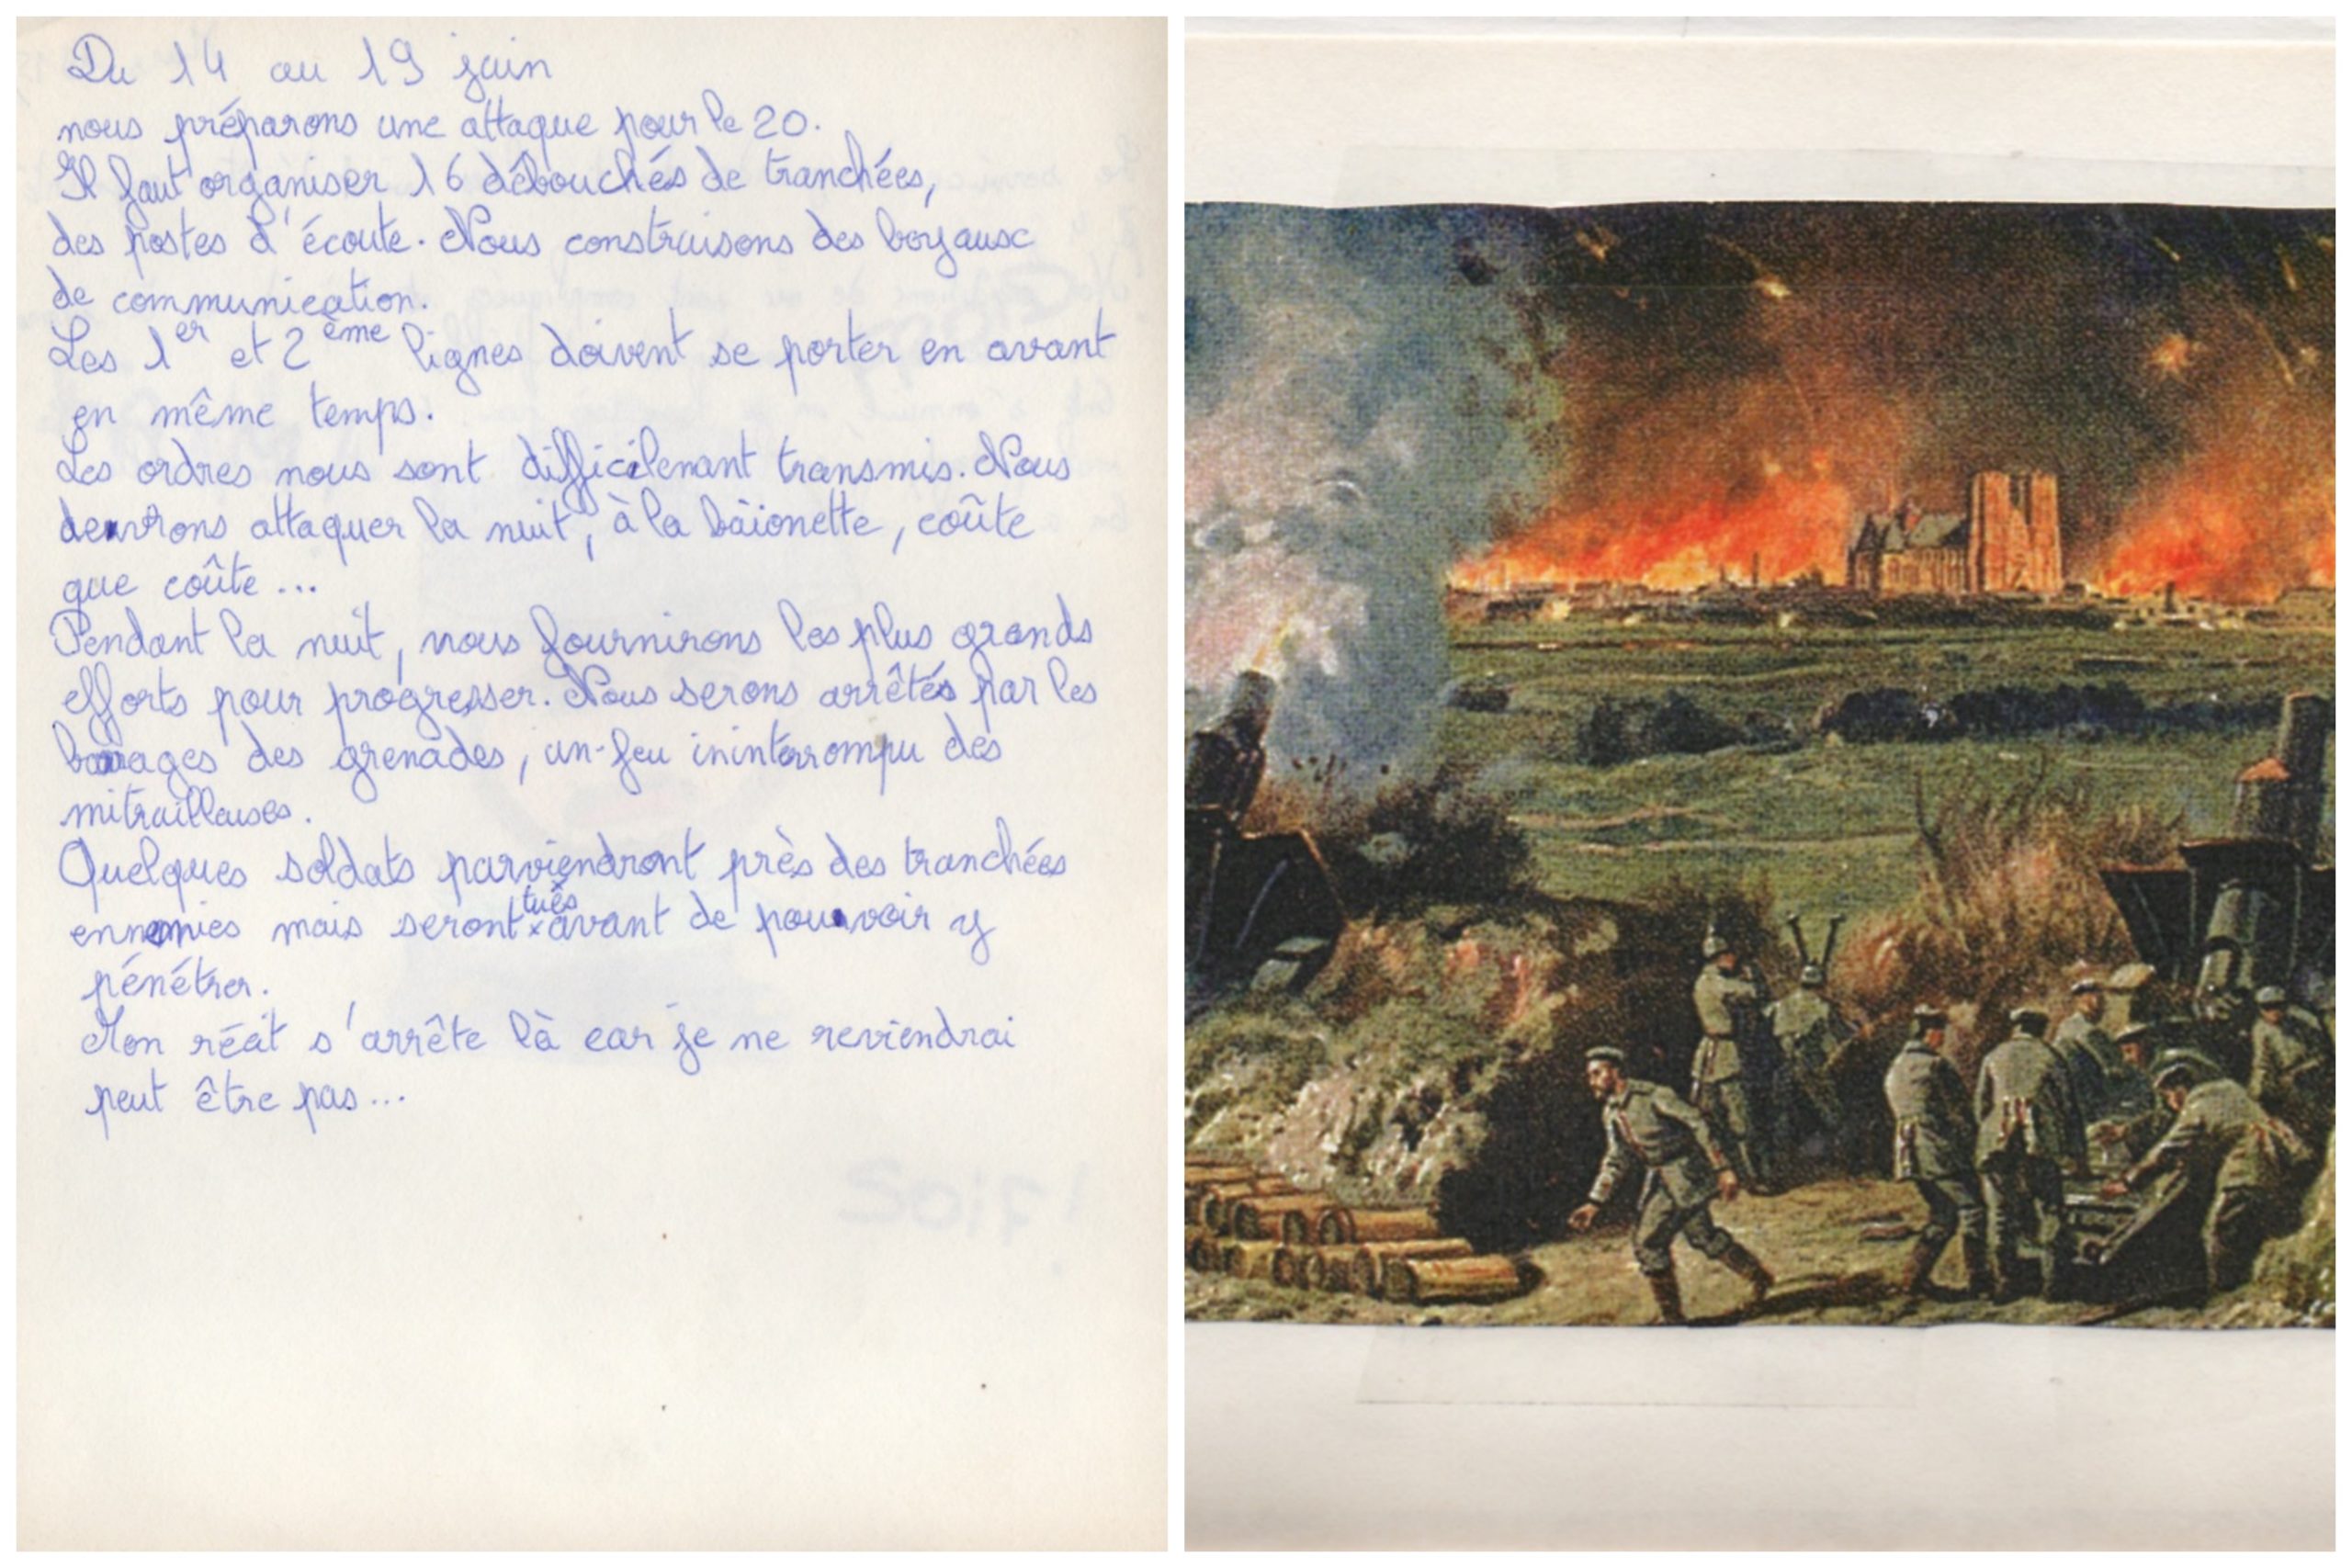 Du 14 au 19 juin
nous préparons une attaque pour le 20.
Il faut organiser 16 débouchés de tranchées,
des postes d'écoute. Nous construisons des boyaux
de communication.
Les 1er et 2ème lignes doivent se porter en avant
en même temps.
Les ordres nous sont difficilenant transmis. Nous
devrons attaquer la nuit, à la bâionette, coûte
que coûte...
Pendant la nuit, nous fournirons les plus grands
efforts pour progresser. Nous serons arrêtés par les
barrages des grenades, un feu ininterrompu des
mitrailleuses.
Quelques soldats parviendront près des tranchées
ennemies mais seront tués avant de pouvoir y
pénétrer.
Mon récit s'arrête là car je ne reviendrai
peut être pas...